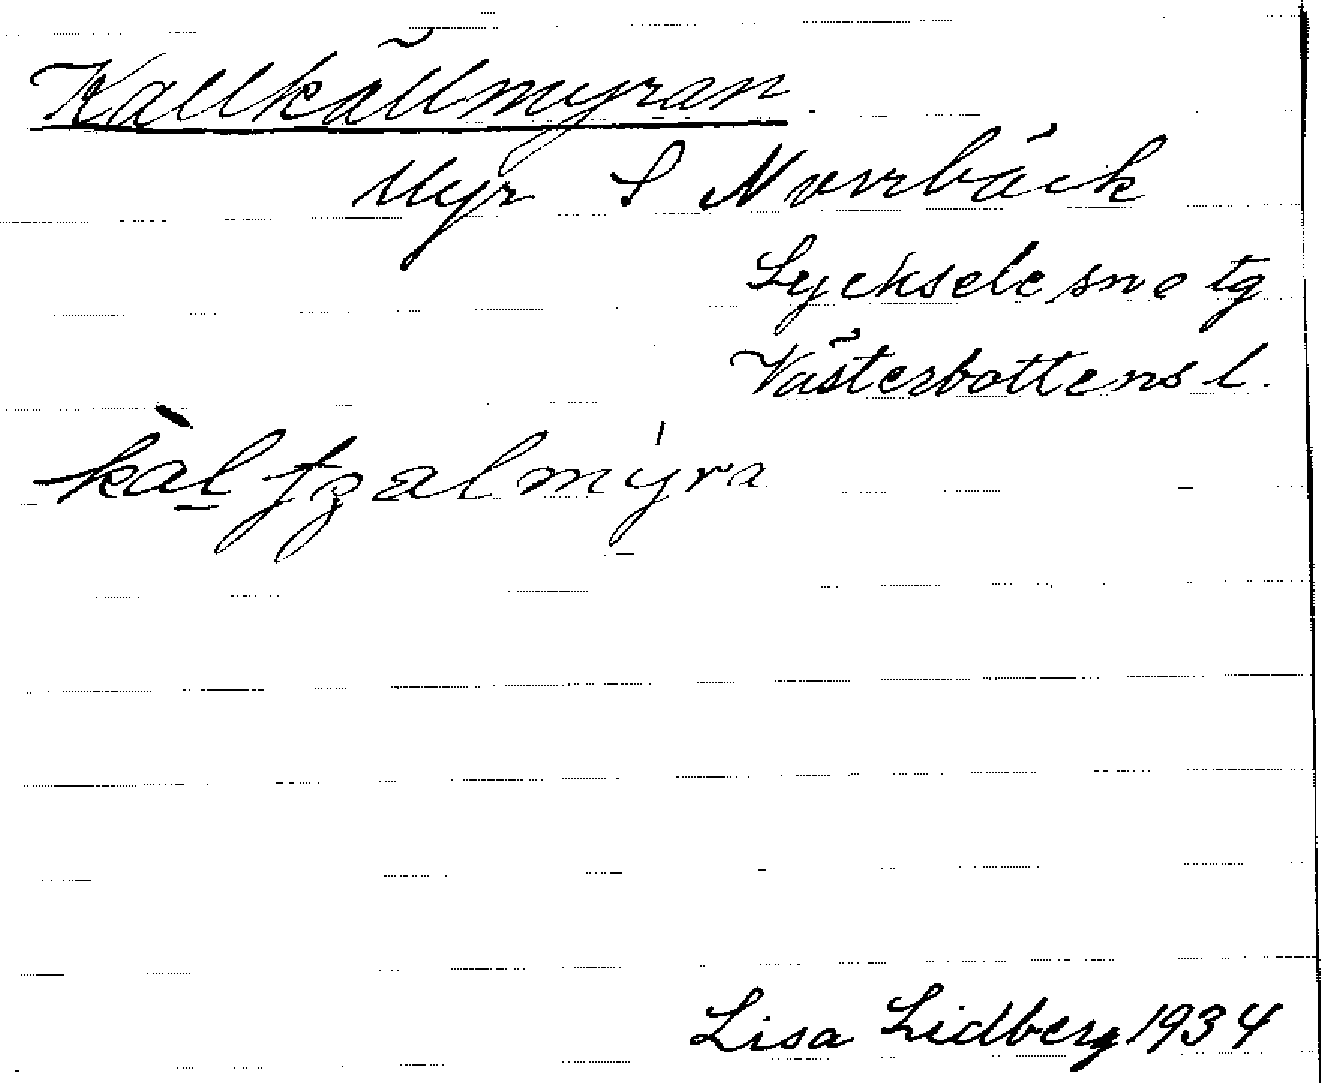 Kallkällmyran
Myr S Norrbäck
Lycksele sn o tg
Västerbottens l.
kàl̠tʒalmýra
Lisa Lidberg 1934